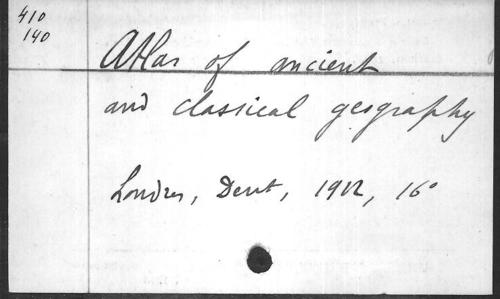 410
140
Atlas of ancient
and classical geography
Londres, Dent, 1912, 16°